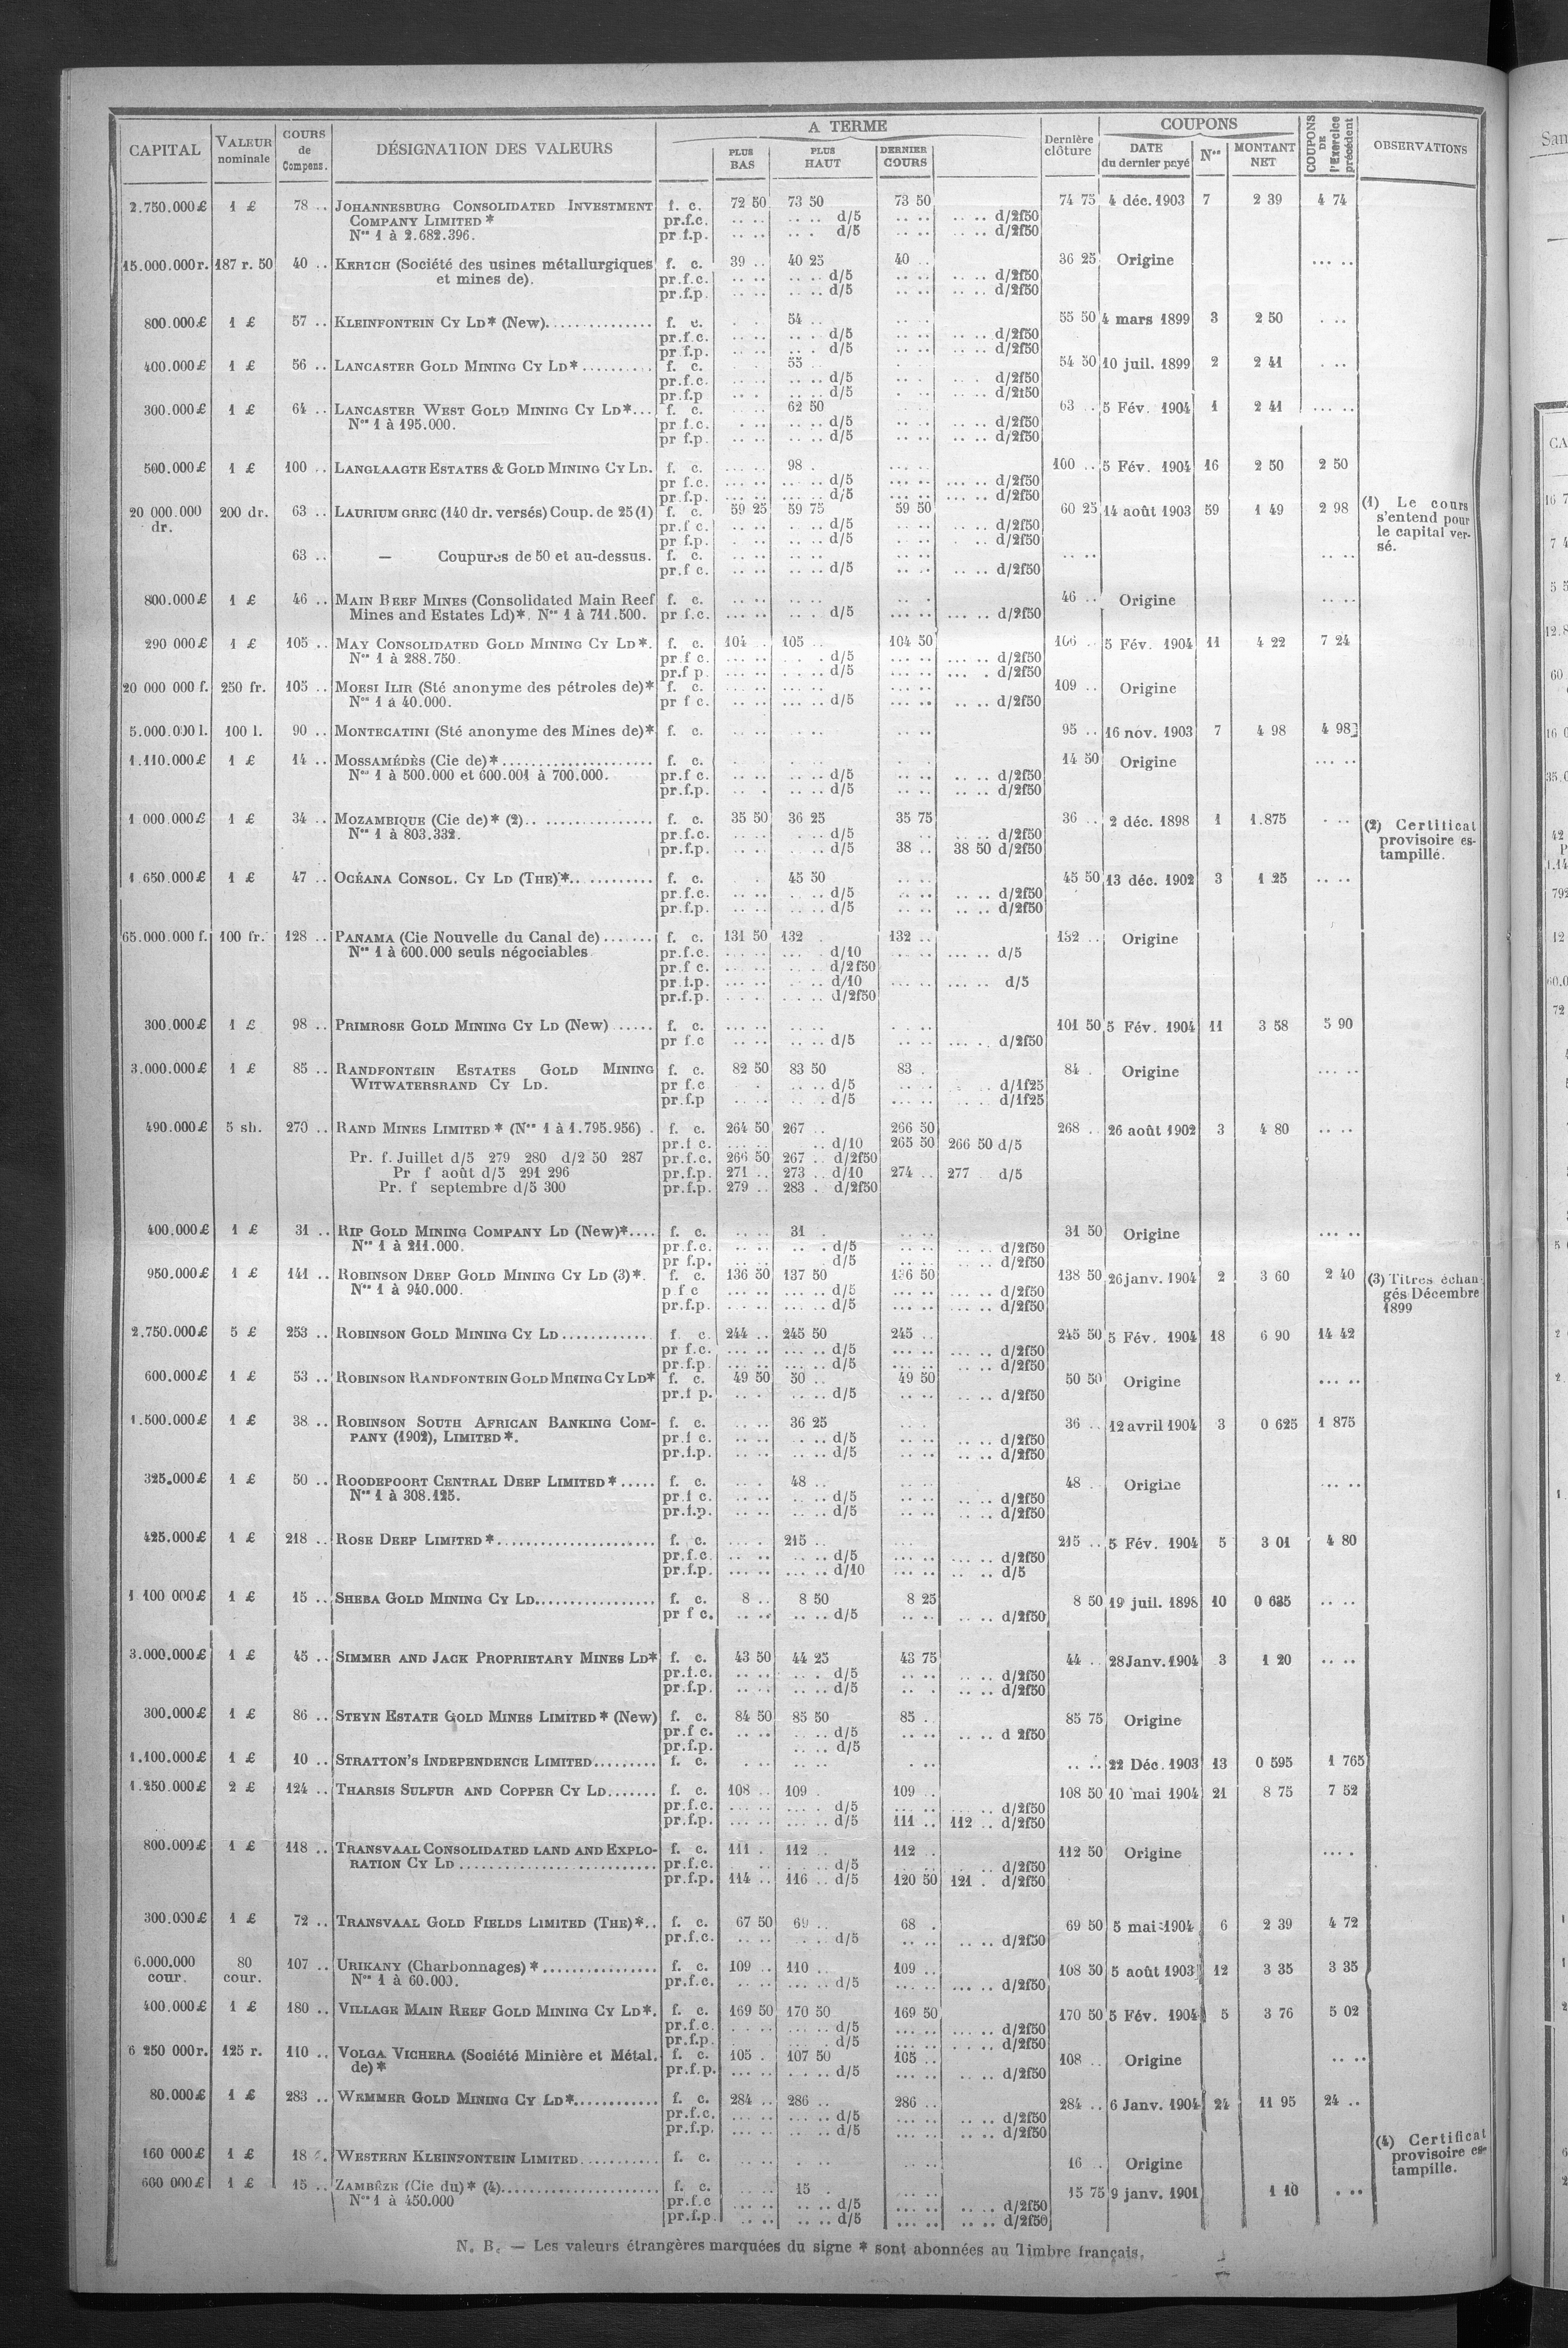 CAPITAL VALEUR nominale COURS de Compens. DÉSIGNATION DES VALEURS A TERME PLUS BAS PLUS HAUT DERNIER COURS Dernière clôture COUPONS DATE du dernier payé Nos MONTANT NET COUPONS DE l'Exercice précédent OBSERVATIONS
2.750.000£ 1 £ 78 .. JOHANNESBURG CONSOLIDATED INVESTMENT f. c. 72 50 73 50 73 50 74 75 4 déc. 1903 7 2 39 4 74
COMPANY LIMITED * pr.f.c. .. .. .. .. d/5 .. .. .. .. d/2f50
Nos 1 à 2.682.396. pr f.p. .. .. .. . d/5 .. .. .. .. d/2f50
15.000.000r. 187 r. 50 40 .. KERTCH (Société des usines métallurgiques f. c. 39 .. 40 25 40 .. 36 25 Origine ... ..
et mines de). pr.f.c. .. .. .. .. d/5 .. .. .. .. d/2f50
pr.f.p. .. .. .. .. d/5 .. .. .. .. d/2f50
800.000£ 1 £ 57 .. KLEINFONTEIN CY LD* (New). f. c. 54 .. 55 50 4 mars 1899 3 2 50 . ..
pr.f.c. .. .. .. . d/5 .. .. .. .. d/2f50
pr f.p. .. .. .. . d/5 .. .. .. .. d/2f50
400.000£ 1 £ 56 .. LANCASTER GOLD MINING CY LD* f. c. 55 .. 54 50 10 juil. 1899 2 2 41 . ..
pr.f.c. .. .. .. .. d/5 d/2f50
pr.f.p .. .. d/5 .. .. d/2f50
300.000£ 1 £ 64 .. LANCASTER WEST GOLD MINING CY LD*... f. c. 62 50 63 .. 5 Fév. 1904 1 2 41 ... ..
Nos 1 à 195.000. pr f.c. .. .. .. .. d/5 .. .. .. .. d/2f50
pr f.p. .. .. .. .. d/5 .. .. .. .. d/2f50
500.000£ 1 £ 100 .. LANGLAAGTE ESTATES & GOLD MINING CY LD. f. c. 98 . 100 .. 5 Fév. 1904 16 2 50 2 50
pr f.c. .. .. .. .. d/5 ... .. ... .. d/2f50
pr.f.p. .. .. .. .. d/5 ... .. .. .. d/2f50
20 000.000 200 dr. 63 .. LAURIUM GREC (140 dr. versés) Coup. de 25 (1) f. c. 59 25 59 75 59 50 60 25 14 août 1903 59 1 49 2 98 (1) Le cours
dr. pr.f c. .. .. .. .. d/5 .. .. .. .. d/2f50 s'entend pour
pr f.p. .. .. .. .. d/5 .. .. . .. d/2f50 le capital ver-
63 .. — Coupures de 50 et au-dessus. f. c. .. .. .. .. .. .. .. .. .. .. sé.
pr.f c. .. .. .. .. d/5 .. .. .. .. d/2f50
800.000£ 1 £ 46 .. MAIN REEF MINES (Consolidated Main Reef f. c. .. .. .. .. .. .. 46 .. Origine .. ..
Mines and Estates Ld)*. Nos 1 à 711.500. pr f.c. .. .. .. d/5 ... .. ... .. d/2f50
290 000£ 1 £ 105 .. MAY CONSOLIDATED GOLD MINING CY LD*. f. c. 104 .. 105 .. 104 50 106 .. 5 Fév. 1904 11 4 22 7 24
Nos 1 à 288.750. pr.f c. .. .. . . d/5 ... .. ... .. d/2f50
pr.f p. .. .. .. .. d/5 ... .. ... . d/2f50
20 000 000 f. 250 fr. 105 .. MOESI ILIR (Sté anonyme des pétroles de)* f. c. 109 .. Origine
Nos 1 à 40.000. pr f c. .. .. .. .. d/5 ... .. .. .. d/2f50
5.000.000 l. 100 l. 90 .. MONTECATINI (Sté anonyme des Mines de)* f. c. 95 .. 16 nov. 1903 7 4 98 4 98
1.110.000£ 1 £ 14 .. MOSSAMÉDÈS (Cie de)* f. c. 14 50 Origine ... ..
Nos 1 à 500.000 et 600.001 à 700.000. pr.f c. .. .. .. .. d/5 .. .. .. .. d/2f50
pr.f.p. .. . .. .. d/5 .. .. .. .. d/2f50
1 000.000£ 1 £ 34 .. MOZAMBIQUE (Cie de)* (2) f. c. 35 50 36 25 35 75 36 .. 2 déc. 1898 1 1.875 . .. (2) Certificat
Nos 1 à 803.332. pr.f.c. .. . . .. d/5 .. .. d/2f50 provisoire es-
pr.f.p. .. .. .. .. d/5 38 .. 38 50 d/2f50 tampillé.
1 650.000£ 1 £ 47 .. OCÉANA CONSOL. CY LD (THE)* f. c. 45 50 45 50 13 déc. 1902 3 1 25 .. ..
pr.f.c. .. .. .. .. d/5 .. .. .. .. d/2f50
pr.f.p. .. .. .. .. d/5 .. .. .. .. d/2f50
65.000.000 f. 100 fr. 128 .. PANAMA (Cie Nouvelle du Canal de) f. c. 131 50 132 . 132 .. 132 .. Origine
Nos 1 à 600.000 seuls négociables pr.f.c. .. .. ... . d/10 .. .. ... .. d/5
pr.f c. .. .. . .. d/2f50
pr f.p. .. .. . .. d/10 ... .. ... .. d/5
pr.f.p. .. . .. .. d/2f50
300.000£ 1 £ 98 .. PRIMROSE GOLD MINING CY LD (New) f. c. 101 50 5 Fév. 1904 11 3 58 5 90
pr f.c .. .. .. .. d/5 .. .. ... .. d/2f50
3.000.000£ 1 £ 85 .. RANDFONTEIN ESTATES GOLD MINING f. c. 82 50 83 50 83 . 84 . Origine ... ..
WITWATERSRAND CY LD. pr f.c . .. .. d/5 .. .. d/1f25
pr.f.p .. .. .. .. d/5 ... .. d/1f25
490.000£ 5 sh. 270 .. RAND MINES LIMITED * (Nos 1 à 1.795.956) . f. c. 264 50 267 .. 266 50 268 .. 26 août 1902 3 4 80 .. ..
pr.f c. ... .. .. d/10 265 50 266 50 d/5
Pr. f. Juillet d/5 279 280 d/2 50 287 pr.f.c. 266 50 267 .. d/2f50
Pr f août d/5 291 296 pr.f.p. 271 .. 273 .. d/10 274 .. 277 d/5
Pr. f septembre d/5 300 pr.f.p. 279 .. 283 . d/2f50
400.000£ 1 £ 31 .. RIP GOLD MINING COMPANY LD (New)*.... f. c. 31 . 31 50 Origine ... ..
Nos 1 à 211.000. pr.f.c. .. .. .. . d/5 .. .. .. .. d/2f50
pr f.p. .. .. d/5 .. .. .. .. d/2f50
950.000£ 1 £ 141 .. ROBINSON DEEP GOLD MINING CY LD (3)*. f. c. 136 50 137 50 136 50 138 50 26 janv. 1904 2 3 60 2 40 (3) Titres échan-
Nos 1 à 940.000. p f c .. .. .. .. d/5 ... .. .. .. d/2f50 gés Décembre
pr.f.p. .. .. .. .. d/5 ... .. .. .. d/2f50 1899
2.750.000£ 5 £ 253 .. ROBINSON GOLD MINING CY LD f. c. 244 .. 245 50 245 .. 245 50 5 Fév. 1904 18 6 90 14 42
pr f.c. ... .. ... .. d/5 ... .. ... .. d/2f50
pr.f.p. ... .. ... .. d/5 ... .. .. .. d/2f50
600.000£ 1 £ 53 .. ROBINSON RANDFONTEIN GOLD MINING CY LD* f. c. 49 50 50 .. 49 50 50 50 Origine ... ..
pr.f p. .. . .. .. d/5 .. .. .. .. d/2f50
1.500.000£ 1 £ 38 .. ROBINSON SOUTH AFRICAN BANKING COM- f. c. 36 25 36 .. 12 avril 1904 3 0 625 1 875
PANY (1902), LIMITED*. pr.f c. .. .. . .. d/5 .. .. .. .. d/2f50
pr.f.p. .. .. .. .. d/5 .. .. .. .. d/2f50
325.000£ 1 £ 50 .. ROODEPOORT CENTRAL DEEP LIMITED* ..... f. c. 48 .. 48 . Origine ... ..
Nos 1 à 308.125. pr.f c. .. .. .. .. d/5 .. .. .. .. d/2f50
pr.f.p. .. .. .. .. d/5 .. .. .. .. d/2f50
425.000£ 1 £ 218 .. ROSE DEEP LIMITED* f. c. 215 .. 215 .. 5 Fév. 1904 5 3 01 4 80
pr.f.c. .. .. .. .. d/5 ... .. ... .. d/2f50
pr.f.p. ... .. ... .. d/10 ... .. .. .. d/5
1 100 000£ 1 £ 15 .. SHEBA GOLD MINING CY LD f. c. 8 .. 8 50 8 25 8 50 19 juil. 1898 10 0 635 .. ..
pr f c. .. .. .. .. d/5 .. .. .. .. d/2f50
3.000.000£ 1 £ 45 .. SIMMER AND JACK PROPRIETARY MINES LD* f. c. 43 50 44 25 43 75 44 .. 28 Janv. 1904 3 1 20 .. ..
pr.f.c. .. .. .. . d/5 .. .. .. .. d/2f50
pr.f.p. .. .. .. .. d/5 .. . .. .. d/2f50
300.000£ 1 £ 86 .. STEYN ESTATE GOLD MINES LIMITED* (New) f. c. 84 50 85 50 85 . 85 75 Origine
pr.f c. .. .. .. .. d/5 .. .. .. .. d 2f50
pr.f.p. .. .. d/5
1.100.000£ 1 £ 10 .. STRATTON'S INDEPENDENCE LIMITED......... f. c. .. .. 22 Déc. 1903 13 0 595 1 765
1.250.000£ 2 £ 124 .. THARSIS SULFUR AND COPPER CY LD....... f. c. 108 .. 109 . 109 .. 108 50 10 mai 1904 21 8 75 7 52
pr.f.c. ... .. ... . d/5 ... .. ... .. d/2f50
pr.f.p. ... .. ... .. d/5 111 .. 112 .. d/2f50
800.000£ 1 £ 118 .. TRANSVAAL CONSOLIDATED LAND AND EXPLO- f. c. 111 . 112 .. 112 .. 112 50 Origine ... .
RATION CY LD pr.f.c. .. .. d/5 .. .. d/2f50
pr.f.p. 114 .. 116 .. d/5 120 50 121 . d/2f50
300.000£ 1 £ 72 .. TRANSVAAL GOLD FIELDS LIMITED (THE)*.. f. c. 67 50 69 .. 68 . 69 50 5 mai 1904 6 2 39 4 72
pr.f.c. .. .. . .. d/5 .. .. .. .. d/2f50
6.000.000 80 107 .. URIKANY (Charbonnages)* f. c. 109 .. 110 .. 109 .. 108 50 5 août 1903 12 3 35 3 35
cour. cour. Nos 1 à 60.000. pr.f.c. .. .. ... .. d/5 ... .. ... .. d/2f50
400.000£ 1 £ 180 .. VILLAGE MAIN REEF GOLD MINING CY LD*. f. c. 169 50 170 50 169 50 170 50 5 Fév. 1904 5 3 76 5 02
pr.f.c. . .. .. ... .. d/5 ... .. ... .. d/2f50
pr.f.p. .. .. ... .. d/5 ... .. ... .. d/2f50
6 250 000r. 125 r. 110 .. VOLGA VICHERA (Société Minière et Métal. f. c. 105 . 107 50 105 .. 108 .. Origine .. ..
de)* pr.f.p. ... .. . .. d/5 ... .. .. .. d/2f50
80.000£ 1 £ 283 .. WEMMER GOLD MINING CY LD*............ f. c. 284 .. 286 .. 286 .. 284 .. 6 Janv. 1904 24 11 95 24 ..
pr.f.c. ... .. ... .. d/5 ... .. .. .. d/2f50
pr.f.p. ... .. ... .. d/5 ... .. .. .. d/2f50
160 000£ 1 £ 18 . WESTERN KLEINFONTEIN LIMITED........... f. c. 16 .. Origine (4) Certificat
provisoire es-
tampille.
600 000£ 1 £ 15 .. ZAMBÈZE (Cie du)* (4) f. c. 15 . 15 75 9 janv. 1901 1 10 . ..
Nos 1 à 450.000 pr.f.c ... .. .. .. d/5 ... .. .. .. d/2f50
pr.f.p. .. .. .. .. d/5 ... .. .. .. d/2f50
N. B. — Les valeurs étrangères marquées du signe * sont abonnées au Timbre français.